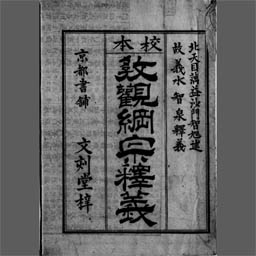 校本
北天目蕅益沙門智旭述
故義水智泉釋義
教觀綱宗釋義
京都書舗
文刻堂梓